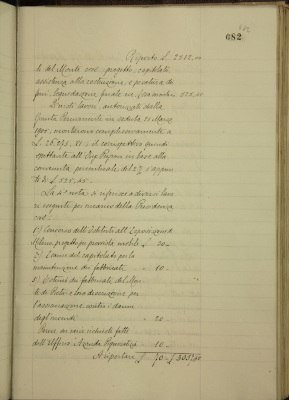 682
Riporto L. 2212.
te del Monte con progetto, capitolato,
assistenza alla costruzione, e pesatura di
ferri, liquidazione finale ecc.
I quali lavori, autorizzati dalla
Giunta Permanente in seduta 20 Marzo
1900, montarono complessivamente a
L. 26.273.51 il corrispettivo quindi
spettante all'Ing. in base alla
convenuta percentuale del 2 %
di L. 525.45
La nota si riferisce a diversi lavo-
ri eseguiti per incarico della Presidenza
cioè:
1°) Concorso dell'Istituto all'Esposizione di
Milano progetti per provvida mobile L. 20
2°) Esame del capitolato per la
manutenzione dei fabbricati " 10
3°) Estimi dei fabbricati del Mon-
te di Pietà e loro descrizione per
l'assicurazione contro i danni
degli incendi " 20
Esame di varie richieste fatte
dall'Ufficio Azienda Pignoratizia " 10
A riportarsi L. 70